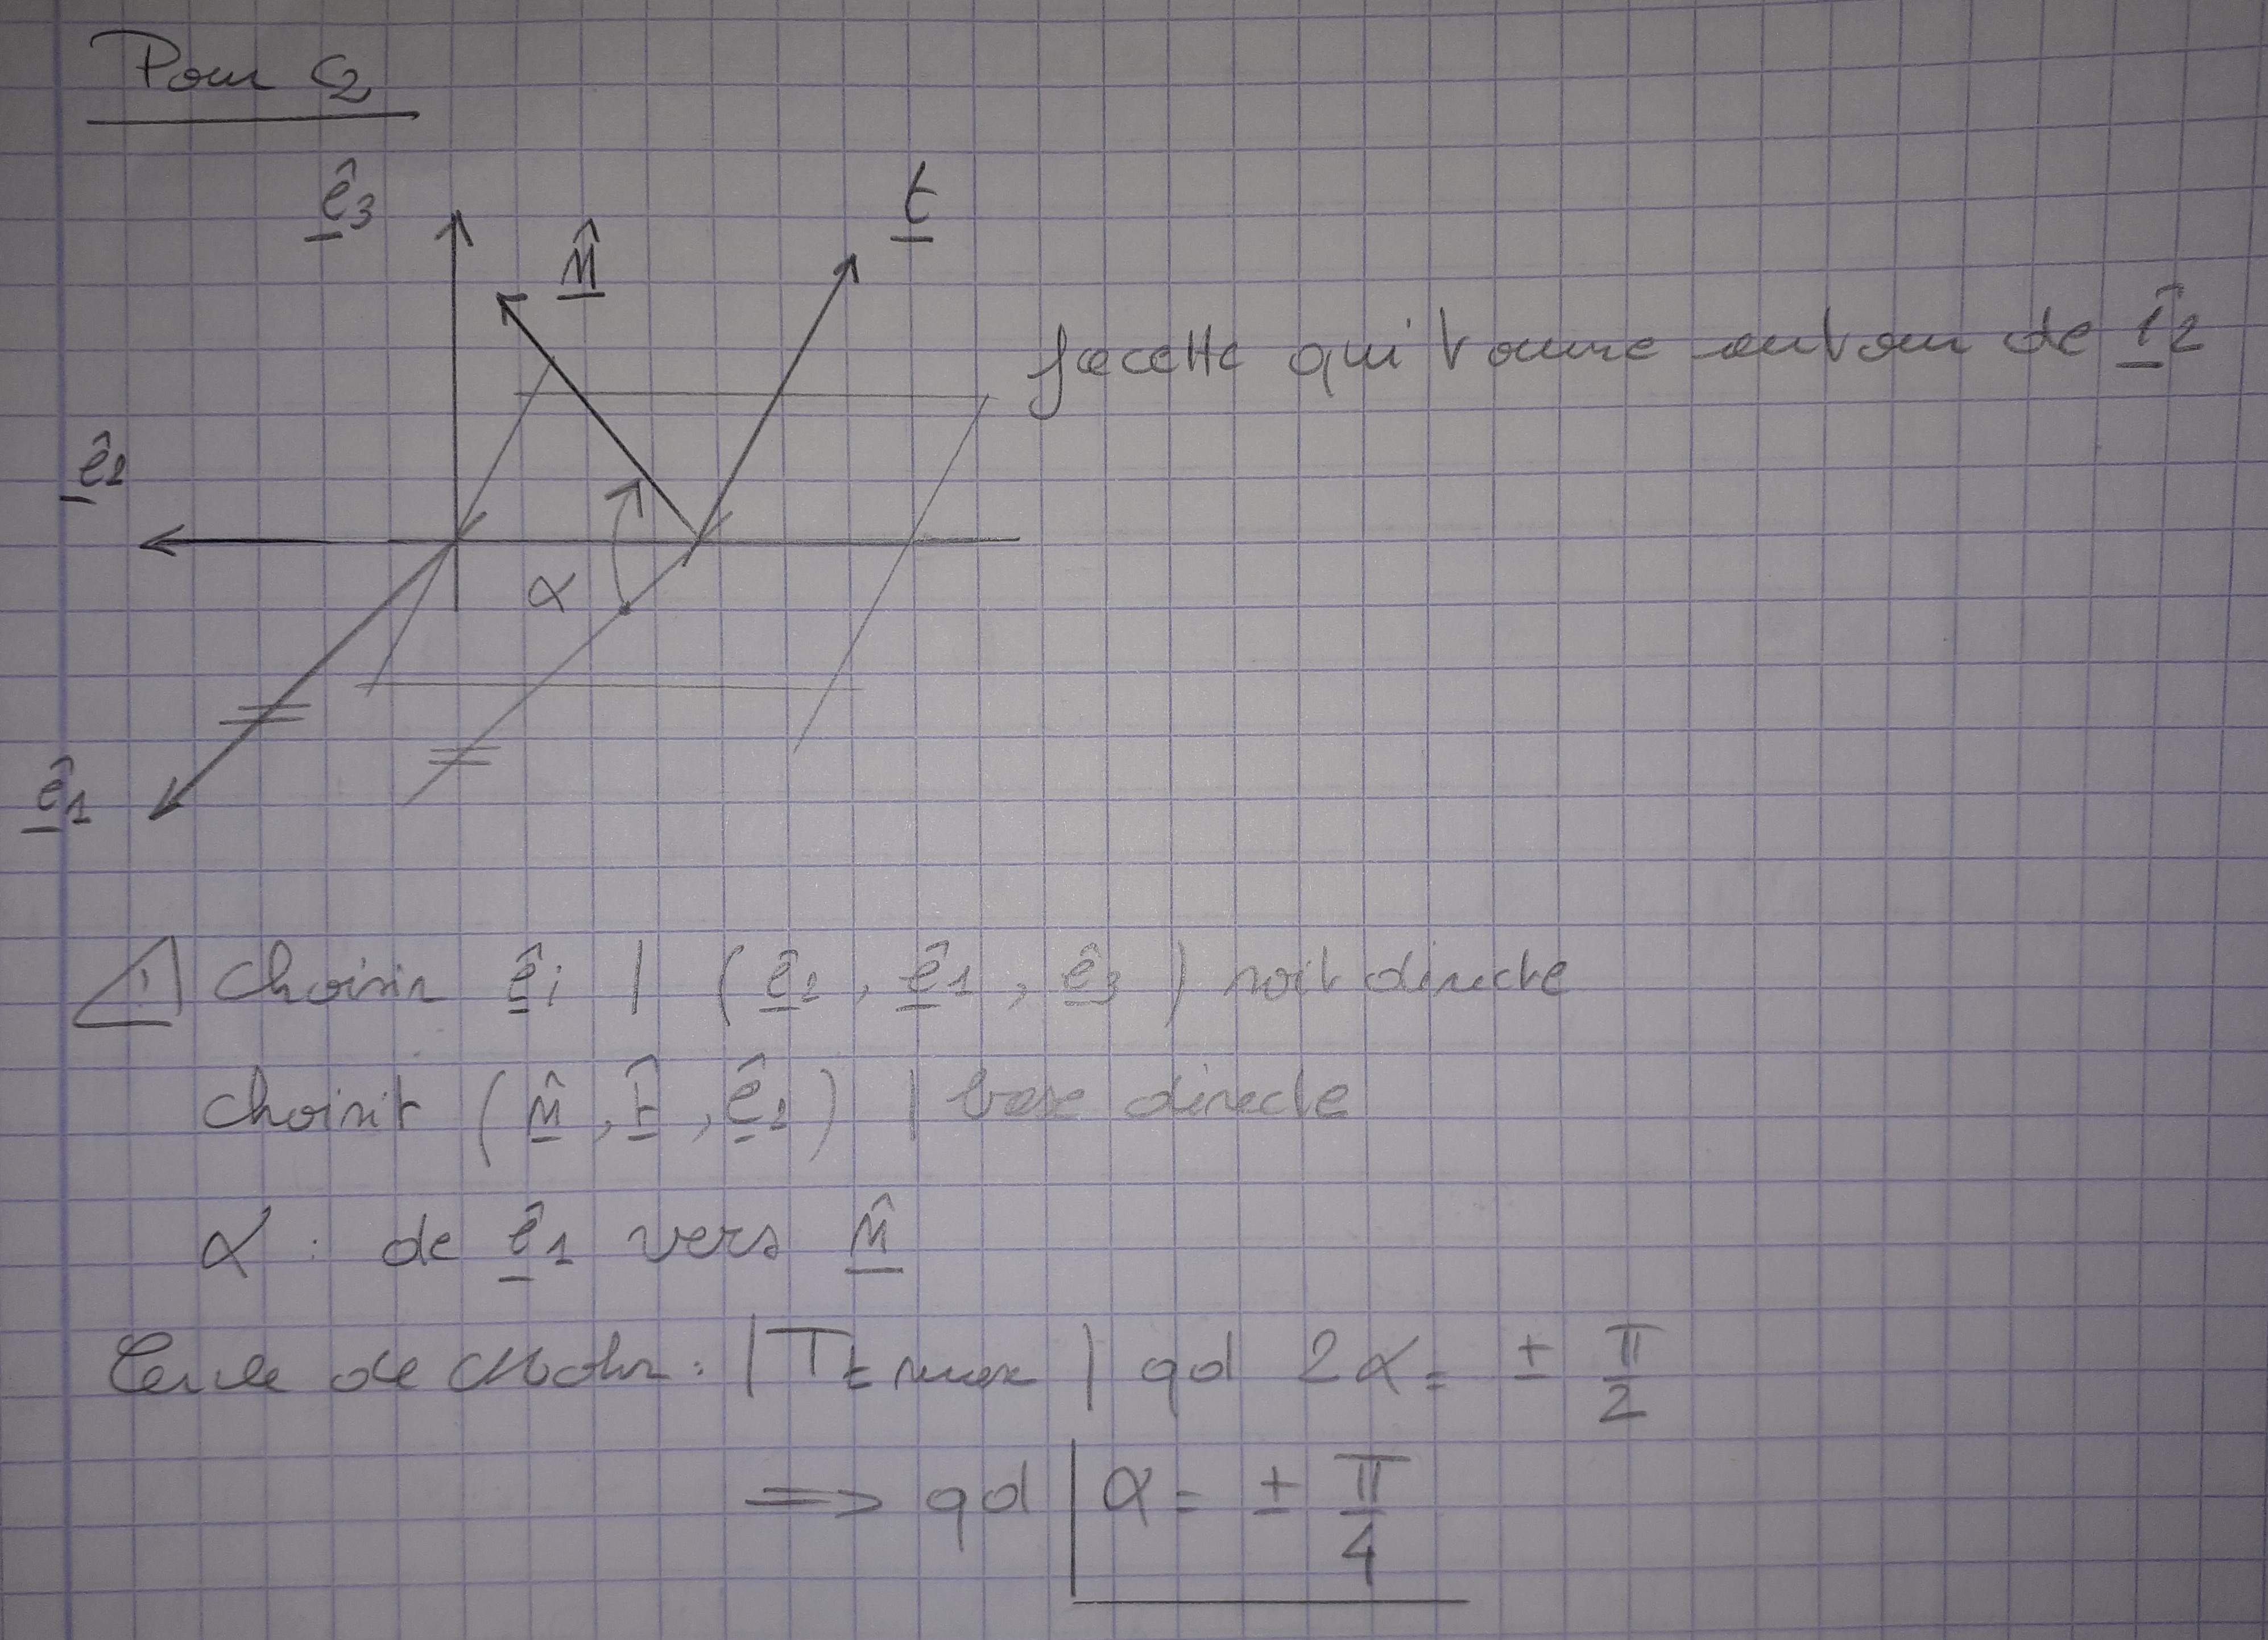 Pour C2
ê3
n̂
t
facette qui tourne autour de î2
ê2
α
ê1
⚠ Choisir êi | (ê2, ê1, ê3) soit directe
choisit (n̂, t̂, ê2) | base directe
α : de ê1 vers n̂
Cercle de Mohr : |Tt max| qd 2α = ± π/2
=> qd α = ± π/4